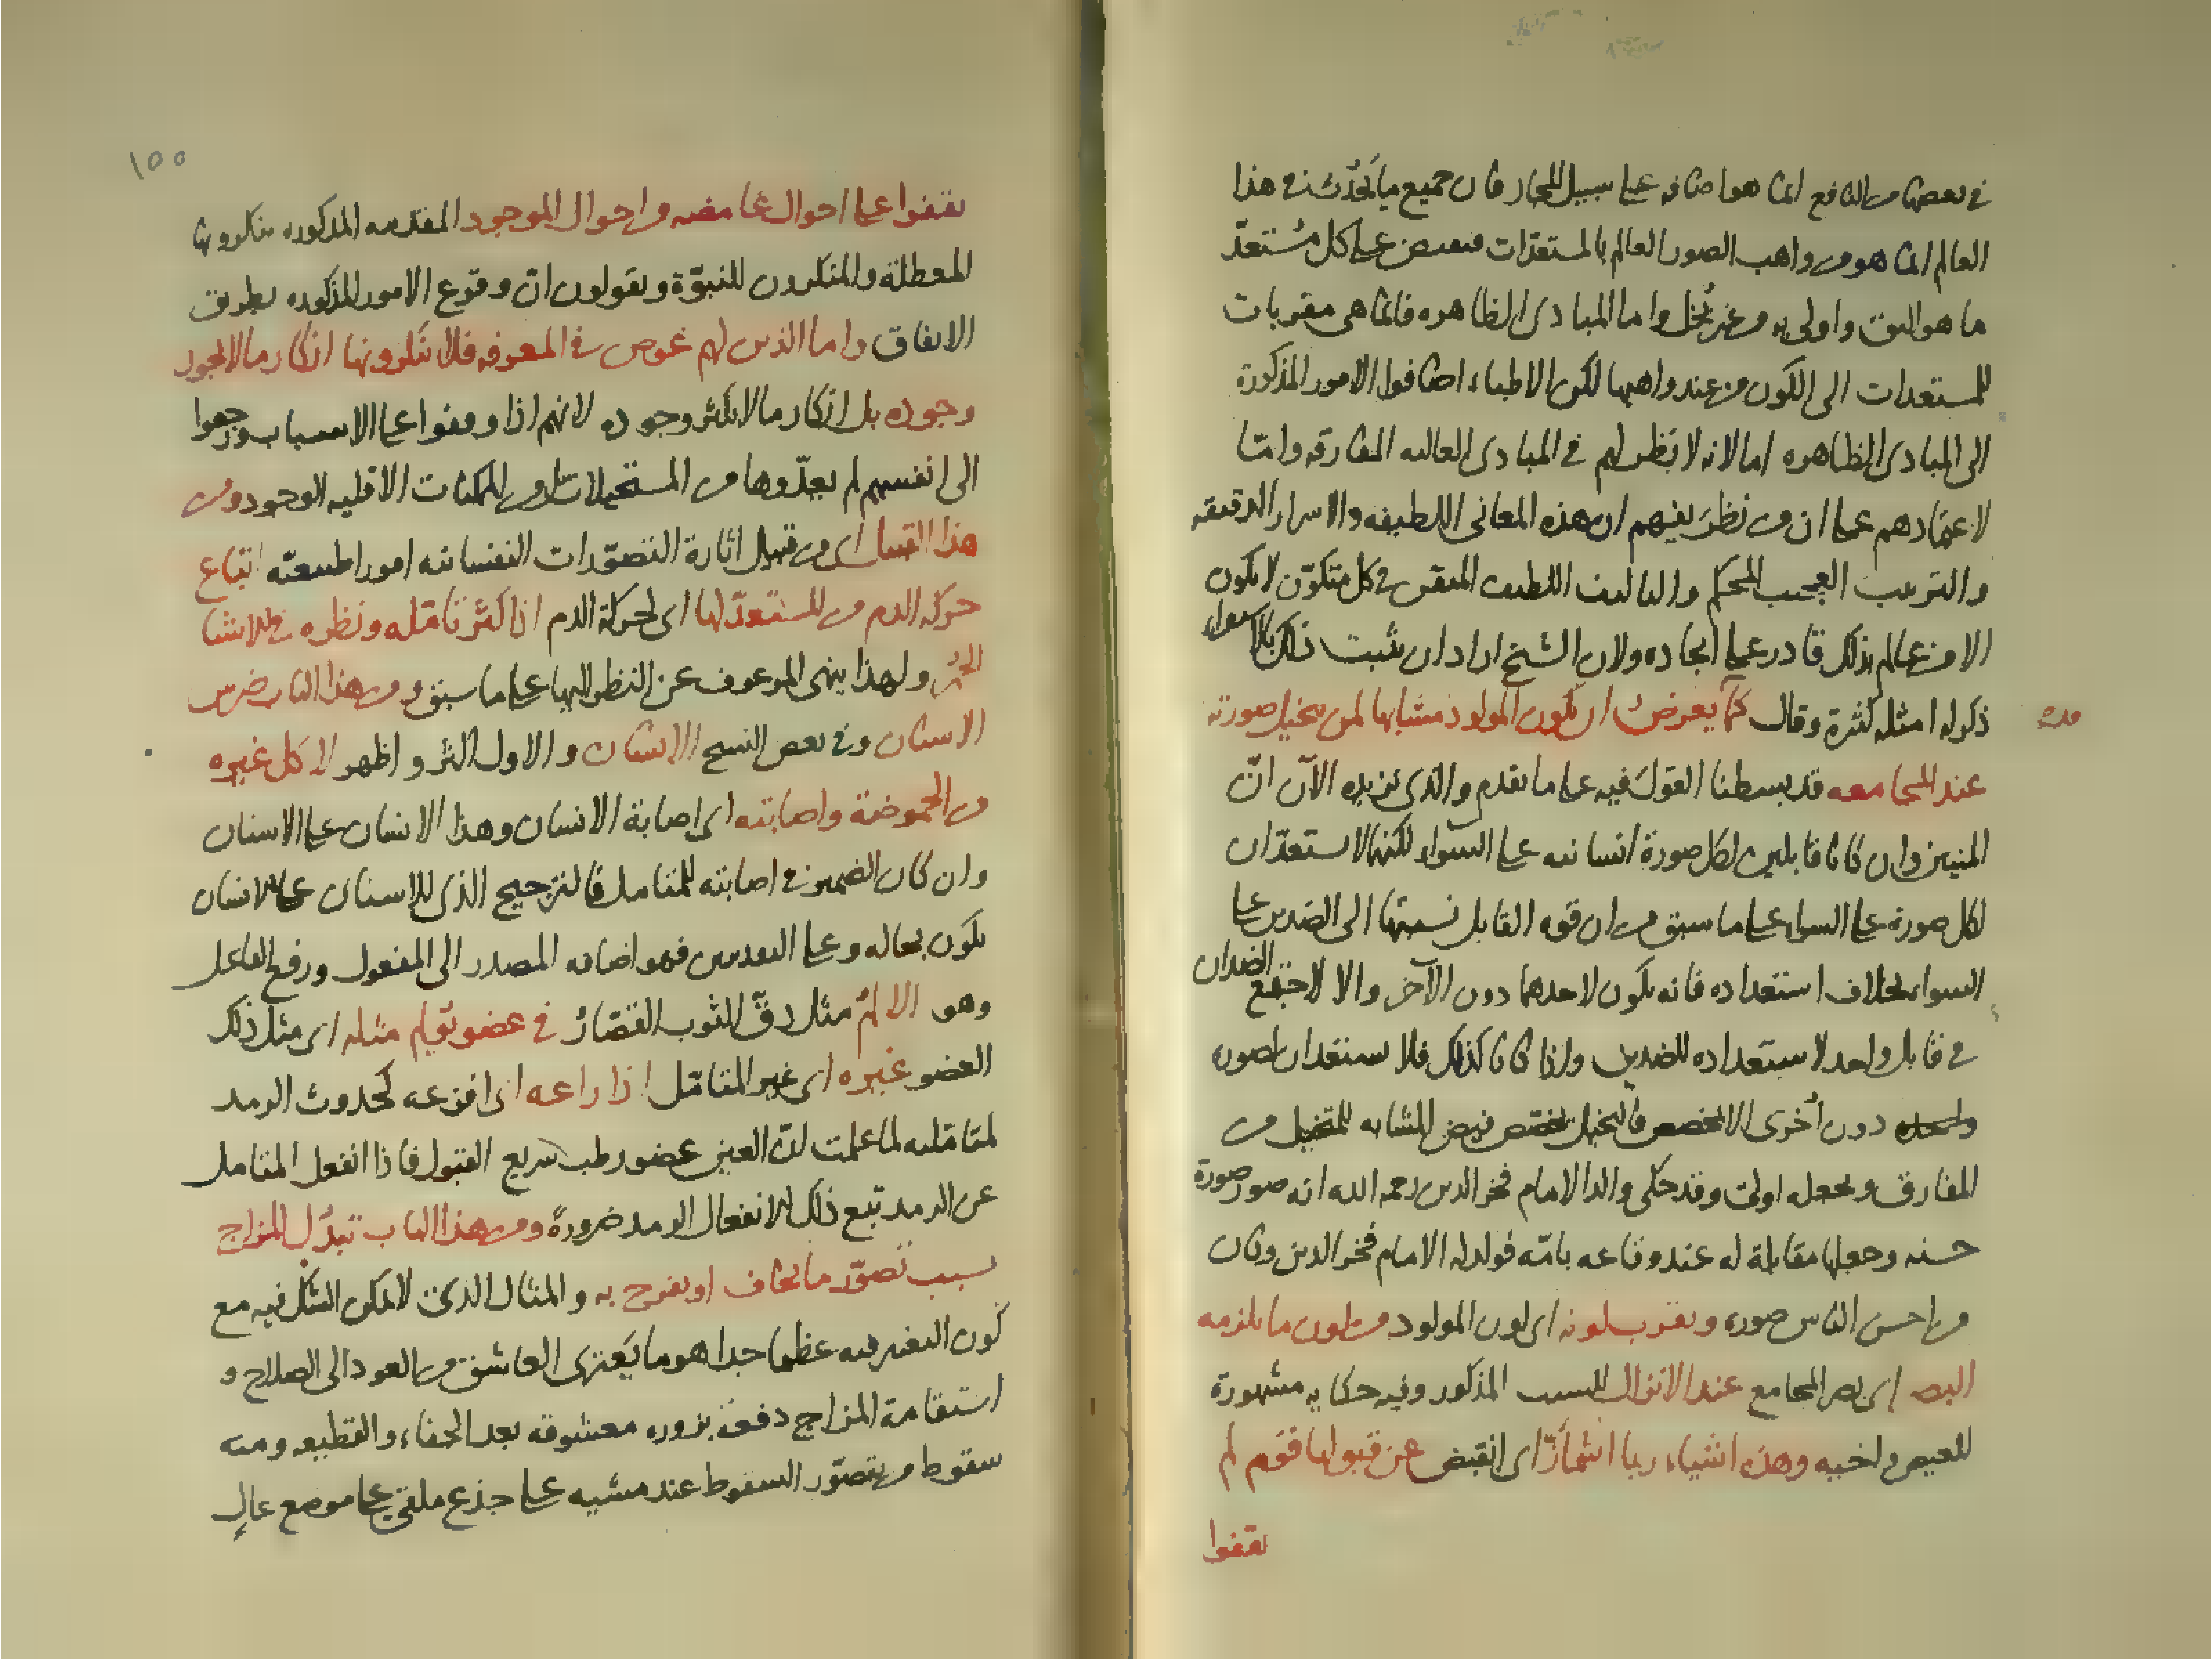 في بعضها من المنافع انما هو اضافه على سبيل المجاز فان جميع ما يحدث في هذا
العالم انما هو من واهب الصور العالم بالمستعدات فيفيض على كل مستعد
ما هو اليق واولى به من غير بخل واما المبادى الظاهره فانما هى مقربات
للمستعدات الى الكون من عند واهبها لكن الاطباء اضافوا الامور المذكورة
الى المبادى الظاهره اما لانه لا نظر لهم في المبادى العاليه المفارقه واما
لاعتمادهم على ان من نظر يفهم ان هذه المعانى اللطيفه والاسرار الدقيقه
والترتيب العجيب المحكم والتاليف اللطيف المتقن في كل متكون لا يكون
الا من عالم بذلك قادر على ايجاده ولان الشيخ اراد ان يثبت ذلك بالاستقراء
ذكر له امثله كثيرة وقال كما يعرض ان يكون المولود مشابها لمن يتخيل صورته
عند المجامعه قد بسطنا القول فيه على ما تقدم والذى نزيده الآن ان
المنيين وان كانا قابلين لكل صورة انسانيه على السواء لكنهما لا يستعدان
لكل صورة على السواء على ما سبق من ان قوه القابل نسبتها الى الضدين على
السواء بخلاف استعداده فانه يكون لاحدهما دون الآخر والا لاجتمع الضدان
في قابل واحد لاستعداده للضدين واذا كانا كذلك فلا يستعدان لصوره
واحده دون أخرى الا لمخصص فالتخيل يخصص فيض المشابه للمتخيل من
المفارق ويجعله اولى وقد حكى والد الامام فخر الدين رحمه الله انه صور صورة
حسنه وجعلها مقابلة له عند وقاعه بامه فولد له الامام فخر الدين وكان
من احسن الناس صوره ويقرب لونه اى لون المولود من لون ما يلزمه
البصر اى بصر المجامع عند الانزال للسبب المذكور وفيه حكايه مشهورة
للعيص واخيه وهذه اشياء ربما اشمأز اى انقبض عن قبولها قوم لم
يقفوا
١٥٥
يقفوا على احوال غامضه من احوال الموجود المقدمه المذكوره ينكرونها
المعطلة والمنكرون للنبوّة ويقولون ان وقوع الامور المذكوره بطريق
الاتفاق واما الذين لهم غوص في المعرفه فلا ينكرونها انكار ما لا يجوز
وجوده بل انكار ما لا يكثر وجوده لانهم اذا وقفوا على الاسباب ورجعوا
الى انفسهم لم يعدّوها من المستحيلات بل من الممكنات الاقليه الوجود ومن
هذا القبيل اى من قبيل اثارة التصوّرات النفسانيه امورا طبيعيّه اتباع
حركة الدم من المستعدّ لها اى لحركة الدم اذا كثر تأمّله ونظره في الاشياء
الحُمر ولهذا ينهى المرعوف عن النظر اليها على ما سبق ومن هذا الباب ضرس
الاسنان وفي بعض النسخ الانسان والاول اكثر واظهر لاكل غيره
من الحموضة واصابته اى اصابة الانسان وهذا الانسان على الاسنان
وان كان الضمير في اصابته للمتامل فالترجيح الذى للاسنان على الانسان
يكون بحاله وعلى التقديرين فهو اضافه المصدر الى المفعول ورفع الفاعل
وهو الالمُ مثل دقّ الثوب القصّارُ في عضو يؤلم مثله اى مثل ذلك
العضو غيره اى غير المتامّل اذا راعه اى افزعه كحدوث الرمد
لمتامّليه لما علمت انّ العين عضو رطب سريع القبول فاذا انفعل المتامل
عن الرمد تبع ذلك الانفعال الرمد ضرورةً ومن هذا الباب تبدّل المزاج
بسبب تصوّر ما يخاف او يفرح به والمثال الذى لا يمكن الشك فيه مع
كون التغير فيه عظيما جدا هو ما يَعترى العاشق من العود الى الصلاح و
استقامة المزاج دفعة بزوره معشوقه بعد الجفاء والقطيعه ومنه
سقوط من يتصوّر السقوط عند مشيه على جذع ملقى على موضع عالٍ